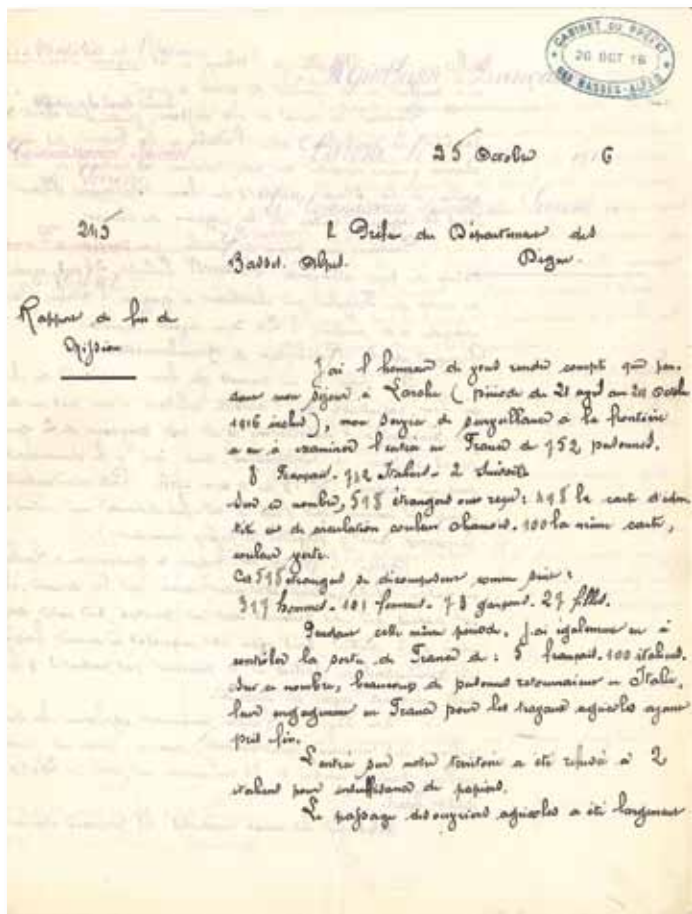 CABINET DU PREFET
26 OCT 16
DES BASSES-ALPES
25 Octobre 6
245
le Préfet du Département des
Basses-Alpes. Digne
Rapport de fin de
Mission
J'ai l'honneur de vous rendre compte que pen-
dant mon séjour à Larche (période du 21 avril au 24 Octobre
1916 inclus), mon service de surveillance à la frontière
a eu à examiner l'entrée en France de 752 personnes.
8 Français. 742 Italiens. 2 Suisses
Sur ce nombre, 518 étrangers ont reçu: 418 la carte d'iden
tité et de circulation couleur chamois. 100 la même carte,
couleur verte.
Ces 518 étrangers se décomposent comme suit:
317 hommes. 101 femmes. 73 garçons. 27 filles.
Pendant cette même période, j'ai également eu à
contrôler la sortie de France de: 5 français. 100 italiens.
Sur ce nombre, beaucoup de personnes retournaient en Italie,
leur engagement en France pour les travaux agricoles ayant
pris fin.
L'entrée sur notre territoire a été refusée à 2
italiens pour insuffisance de papiers.
Le passage des ouvriers agricoles a été largement